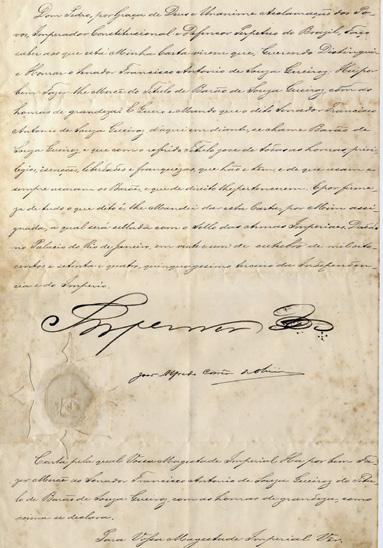 Dom Pedro, por Graça de Deus e Unanime Acclamação dos Po-
vos, Imperador Constitucional e Defensor Perpetuo do Brazil, Faço
saber aos que esta Minha Carta virem que, Querendo Distinguir
e Honrar o Senador Francisco Antonio de Souza Queiroz: Hei por
bem Fazer-lhe Mercê do titulo de Barão de Souza Queiroz, com as
honras de grandeza. E Quero e Mando que o dito Senador Francisco
Antonio de Souza Queiroz d'aqui em diante se chame Barão de
Souza Queiroz e que com o referido titulo gose de todas as honras, privi-
legios, isenções, liberdades e franquezas, que hão e tem, e de que usam e
sempre usaram os Barões, e que de direito lhe pertencerem. E por firme-
za de tudo o que dito é, lhe Mandei dar esta Carta, por Mim assi-
gnada, a qual será sellada com o sello das Armas Imperiaes. Dada
no Palacio do Rio de Janeiro, em vinte e um de outubro de mil oito-
centos e setenta e quatro, quinquagesimo terceiro da Independen-
cia e do Imperio.
Imperador
João Alfredo Corrêa de Oliv.
Carta pela qual Vossa Magestade Imperial Ha por bem Fa-
zer Mercê ao Senador Francisco Antonio de Souza Queiroz do titu-
lo de Barão de Souza Queiroz com as honras de grandeza, como
acima se declara.
Para Vossa Magestade Imperial Ver.